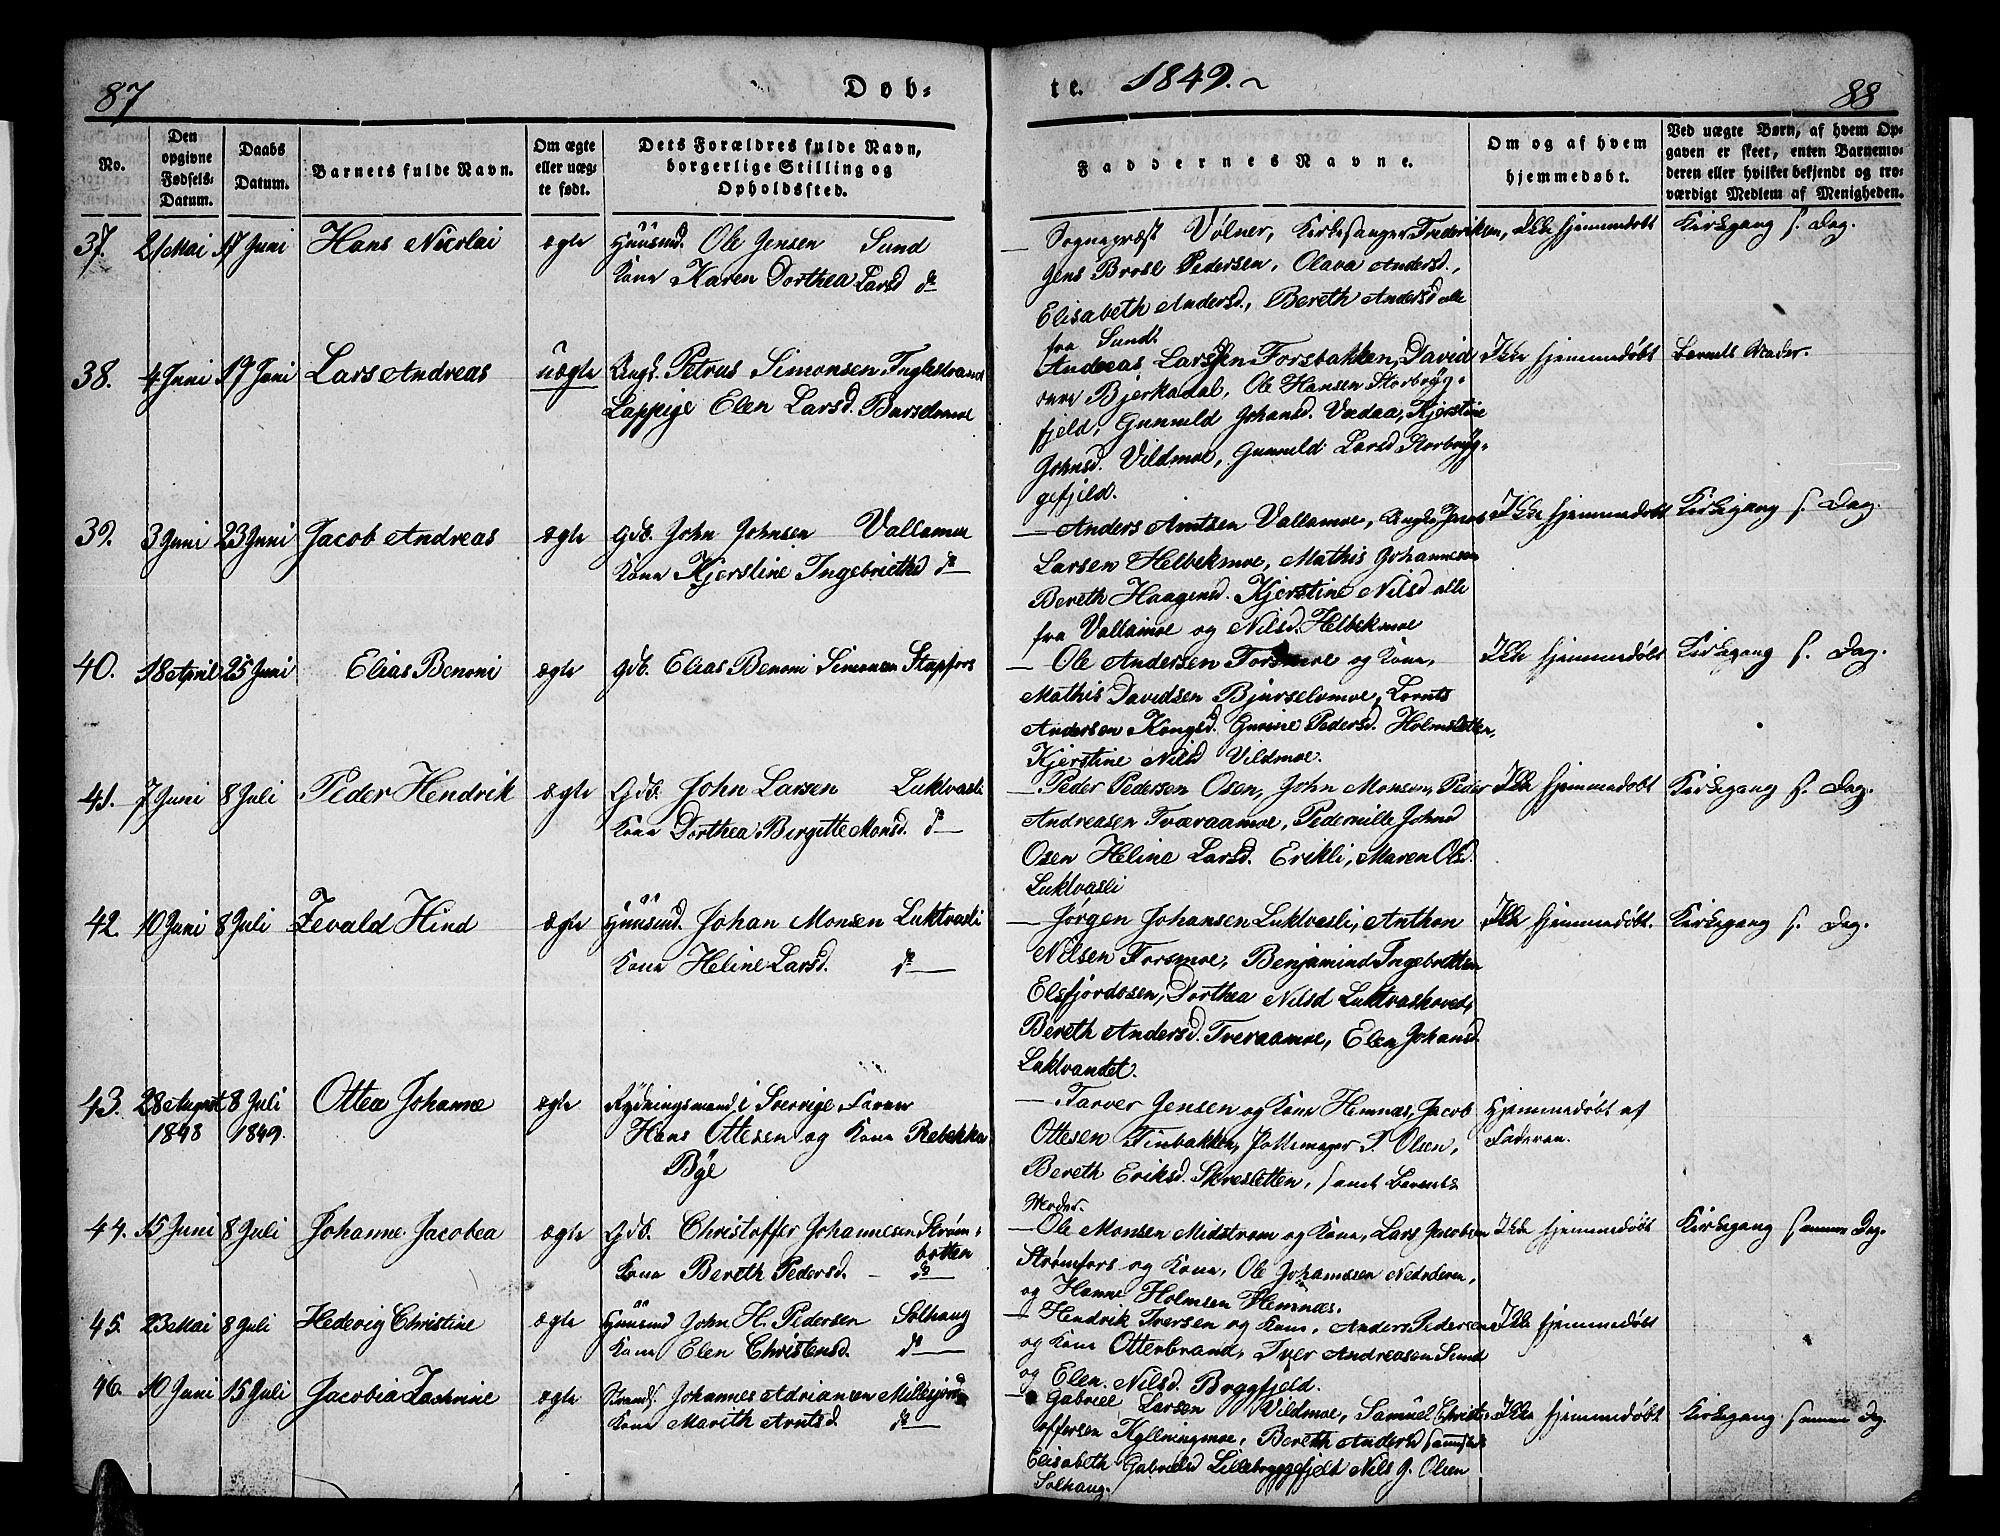 87
Døb-
te. 1849.
88
No.
Den opgivne Fødsels-Datum.
Daabs Datum.
Barnets fulde Navn.
Om ægte eller uæg-te født.
Dets Forældres fulde Navn, borgerlige Stilling og Opholdssted.
Faddernes Navne.
Om og af hvem hjemmedøbt.
Ved uægte Børn, af hvem Op-gaven er skeet, enten Barnemo-deren eller hvilket bekjendt og tro-værdigt Medlem af Menigheden.
37. 21 Mai 17 Juni Hans Nicolai ægte Huusmd. Ole Jensen Sund
Kone Karen Dorthea Larsd do
Sognepræst Vølner, Kirkesanger Frederiksen,
Jens Brose Pedersen, Olava Andersd.,
Elisabeth Andersd., Bereth Andersd alle
fra Sund.
Ikke hjemmedøbt
Kirkegang s. Dag.
38. 4 Juni 17 Juni Lars Andreas uægte Ungk. Petrus Simonsen Inglestrand
Lappige Elen Larsd.
Andreas Larsen Forsbakken, David
Bjerkadal, Ole Hansen Storbryg-
fjeld, Gunnild Johansd. Vædaa, Kjerstine
Johnsd. Vildmoe, Gunnild Larsd Storbryg-
gefjeld.
Ikke hjemmedøbt
Barnets Moder.
39. 3 Juni 23 Juni Jacob Andreas ægte Gdb. John Johnsen Vallamoe
Kone Kjerstine Ingebrigtsd do
Anders Arntsen Vallamoe, Ungk.
Larsen Helbekmoe, Mathis Johannesen
Bereth Haagensd. Kjerstine Nilsd alle
fra Vallamoe og Nilsd. Helbekmoe
Ikke hjemmedøbt
Kirkegang s. Dag.
40. 18 April 25 Juni Elias Benoni ægte Gdb. Elias Benoni Simonsen Stapfors
Ole Andersen Forsmoe og Kone,
Mathis Davidsen Bjurselvmoe, Lornts
Andersen Kongsd. Gurine Pedersd. Holmsletten,
Kjerstine Nilsd Vildmoe.
Ikke hjemmedøbt
Kirkegang s. Dag.
41. 7 Juni 8 Juli Peder Hendrik ægte Gdb. John Larsen Luktvasli
Kone Dorthea Birgitte Monsd. do
Peder Pedersen Osen, John Monsen, Peder
Andreasen Tværaamoe, Pedernille Johnsd
Osen Heline Larsd. Erikli, Maren Olsd.
Luktvasli
Ikke hjemmedøbt
Kirkegang s. Dag.
42. 10 Juni 8 Juli Zevald Hind ægte Huusmd. Johan Monsen Luktvasli
Kone Heline Larsd. do
Jørgen Johansen Luktvasli, Anthon
Nilsen Forsmoe, Benjamind Ingebretsen
Elsfjordosen, Dorthea Nilsd Luktvashoved,
Bereth Andersd. Tveraamoe, Elen Johansd.
Luktvandet.
Ikke hjemmedøbt.
Kirkegang s. Dag.
43. 28 August 1848 8 Juli 1849. Ottea Johanne ægte Rydningsmand i Sverrige
Hans Ottesen og Kone Rebekka
Bye
Tarver Jensen og Kone Hemnæs, Jacob
Ottesen Tinbakken, Pottemager P. Olsen,
Bereth Eriksd. Skresletten, samt Barnets
Moder.
Hjemmedøbt af
Faderen.
44. 15 Juni 8 Juli Johanne Jacobea ægte Gdb. Christoffer Johannesen Strøm-
botten
Kone Bereth Pedersd. do
Ole Monsen Midstrøm og Kone, Lars Jacobsen
Strømfors og Kone, Ole Johannesen Nedreleren,
og Hanne Holmsen Hemnæs.
Ikke hjemmedøbt
Kirkegang samme Dag.
45. 23 Mai 8 Juli Hedevig Christine ægte Huusmd John H. Pedersen Solhaug
Kone Elen Christensd. do
Hendrik Iversen og Kone, Anders Pedersen
og Kone Otterbrand, Iver Andreasen Sund
og Elen Nilsd. Bryggfjeld.
Ikke hjemmedøbt
46. 10 Juni 15 Juli Jacobia Zachrine ægte Strands. Johannes Adriansen Millesjord
Kone Mareth Arntsd. do
Gabriel Larsen Vildmoe, Samuel Christ-
offersen Kyllningmoe, Bereth Andersd sammested
Elisabeth Gabrielsd Lillebryggefjeld Nils J. Olsen
Solhaug.
Ikke hjemmedøbt
Kirkegang samme Dag.